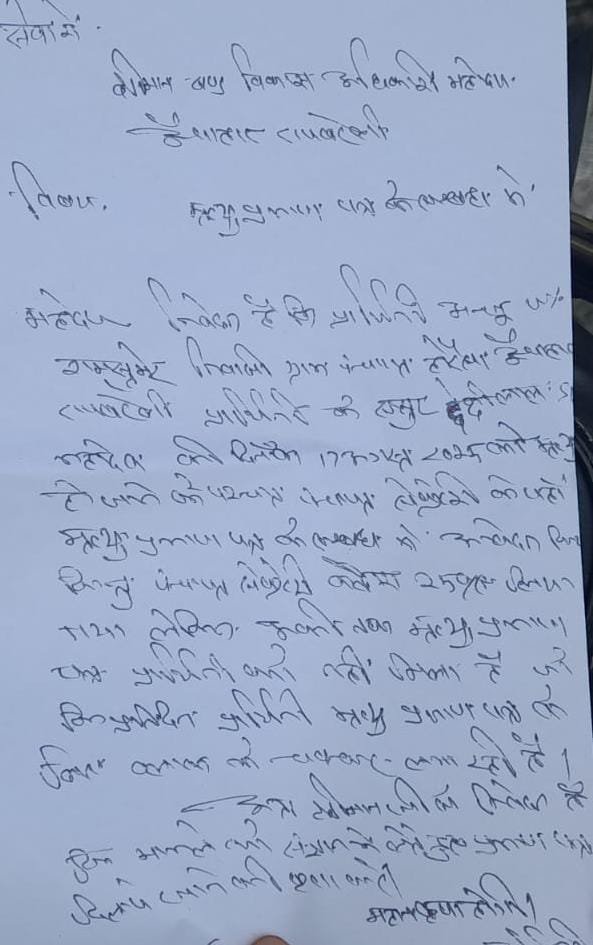 सेवा में.
श्रीमान खण्ड विकास अधिकारी महोदय.
रायबरेली
विषय. मृत्यु प्रमाण पत्र के सम्बन्ध में.
महोदय निवेदन है कि प्रार्थिनी
रामसुमेर निवासी ग्राम पंचायत
रायबरेली प्रार्थिनी के ससुर
महादेव की दिनांक 17 2025 को मृत्यु
हो जाने के पश्चात पंचायत सेक्रेटरी के यहाँ
मृत्यु प्रमाण पत्र के सम्बन्ध में आवेदन किया
किन्तु पंचायत सेक्रेटरी
गया लेकिन अभी तक मृत्यु प्रमाण
पत्र प्रार्थिनी को नहीं मिला है
प्रतिदिन प्रार्थिनी मृत्यु प्रमाण पत्र के
लिए ब्लाक के चक्कर लगा रही है।
अतः श्रीमान जी से निवेदन है
कि मामले को संज्ञान में लेते हुए प्रमाण पत्र
दिलाये जाने की कृपा करें
महान कृपा होगी।